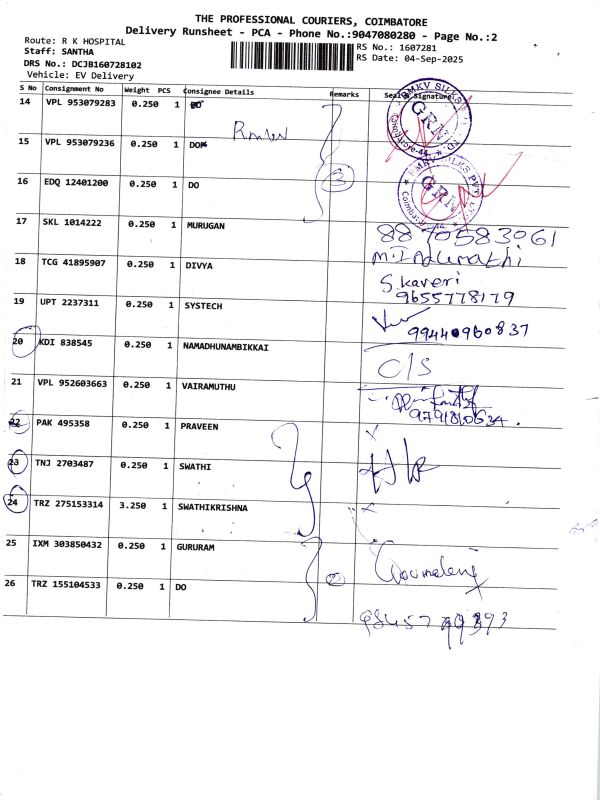 THE PROFESSIONAL COURIERS, COIMBATORE
Delivery Runsheet - PCA - Phone No.:9047080280 - Page No.:2
Route: R K HOSPITAL
Staff: SANTHA
DRS No.: DCJB160728102
Vehicle: EV Delivery
RS No.: 1607281
RS Date: 04-Sep-2025
S No Consignment No Weight PCS Consignee Details Remarks Seal & Signature
14 VPL 953079283 0.250 1 DO
15 VPL 953079236 0.250 1 DOP
3
16 EDQ 12401200 0.250 1 DO
RMKV SILKS
GRN
Coimbatore-44
RMKV SILKS PVT
GRN
17 SKL 1014222 0.250 1 MURUGAN
8870583061
18 TCG 41895907 0.250 1 DIVYA
S.Kaveri
9655778179
19 UPT 2237311 0.250 1 SYSTECH
99440960837
20 KDI 838545 0.250 1 NAMADHUNAMBIKKAI
C/S
21 VPL 952603663 0.250 1 VAIRAMUTHU
22 PAK 495358 0.250 1 PRAVEEN
23 TNJ 2703487 0.250 1 SWATHI
24 TRZ 275153314 3.250 1 SWATHIKRISHNA
25 IXM 303850432 0.250 1 GURURAM
2
26 TRZ 155104533 0.250 1 DO